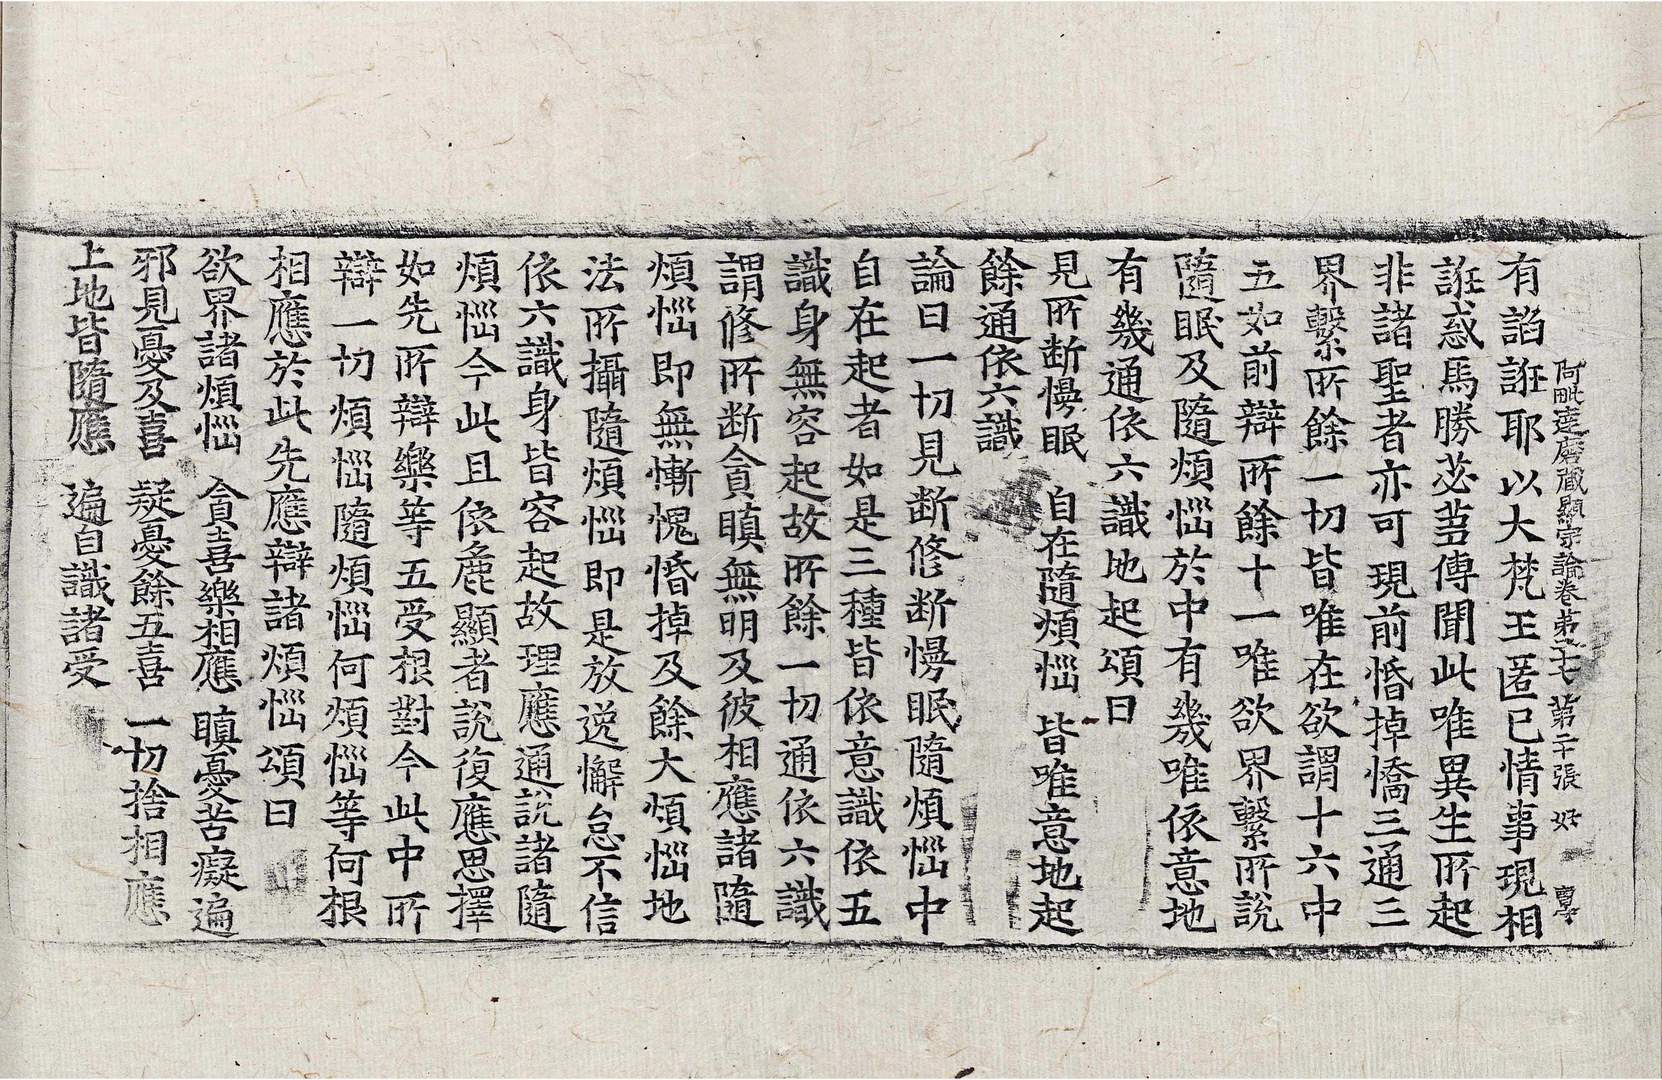 阿毗達磨藏顯宗論卷第二十七 第二十張 好
有諂誑耶以大梵王匿己情事現相
誑惑馬勝苾芻傳聞此唯異生所起
非諸聖者亦可現前惛掉憍三通三
界繫所餘一切皆唯在欲謂十六中
五如前辯所餘十一唯欲界繫所說
隨眠及隨煩惱於中有幾唯依意地
有幾通依六識地起頌曰
見所断慢眠 自在隨煩惱 皆唯意地起
餘通依六識
論曰一切見断修断慢眠隨煩惱中
自在起者如是三種皆依意識依五
識身無容起故所餘一切通依六識
謂修所断貪瞋無明及彼相應諸隨
煩惱即無慚愧惛掉及餘大煩惱地
法所攝隨煩惱即是放逸懈怠不信
依六識身皆容起故理應通說諸隨
煩惱今此且依麁顯者說復應思擇
如先所辯樂等五受根對今此中所
辯一切煩惱隨煩惱何煩惱等何根
相應於此先應辯諸煩惱頌曰
欲界諸煩惱 貪喜樂相應 瞋憂苦癡遍
邪見憂及喜 疑憂餘五喜 一切捨相應
上地皆隨應 遍自識諸受